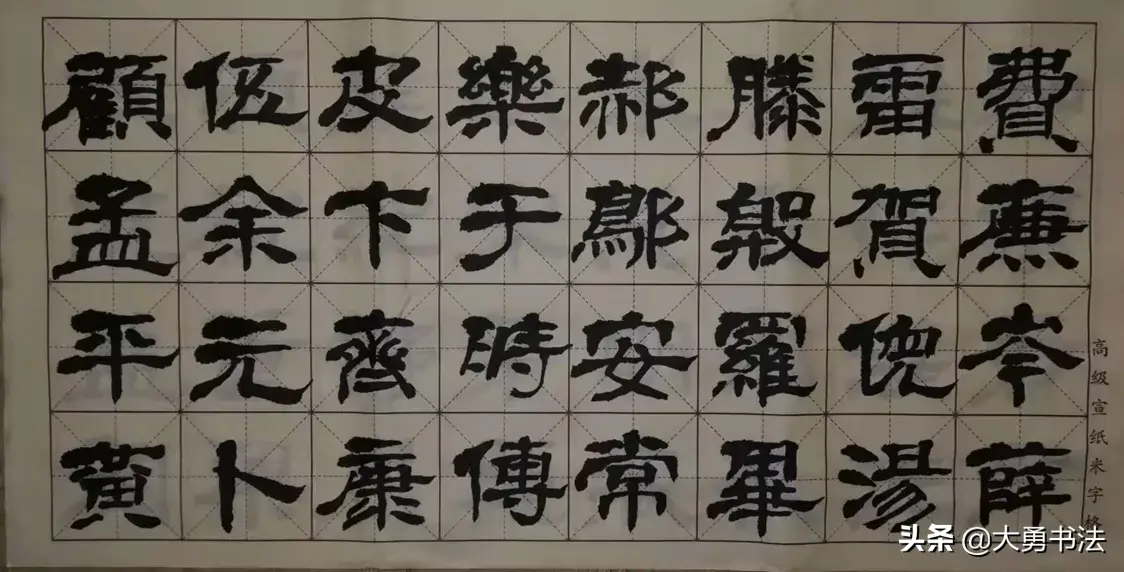 費廉岑薛
雷賀倪湯
滕殷羅畢
郝鄔安常
樂于時傅
皮卞齊康
伍余元卜
顧孟平黃
高级宣纸米字格
头条 @大勇书法